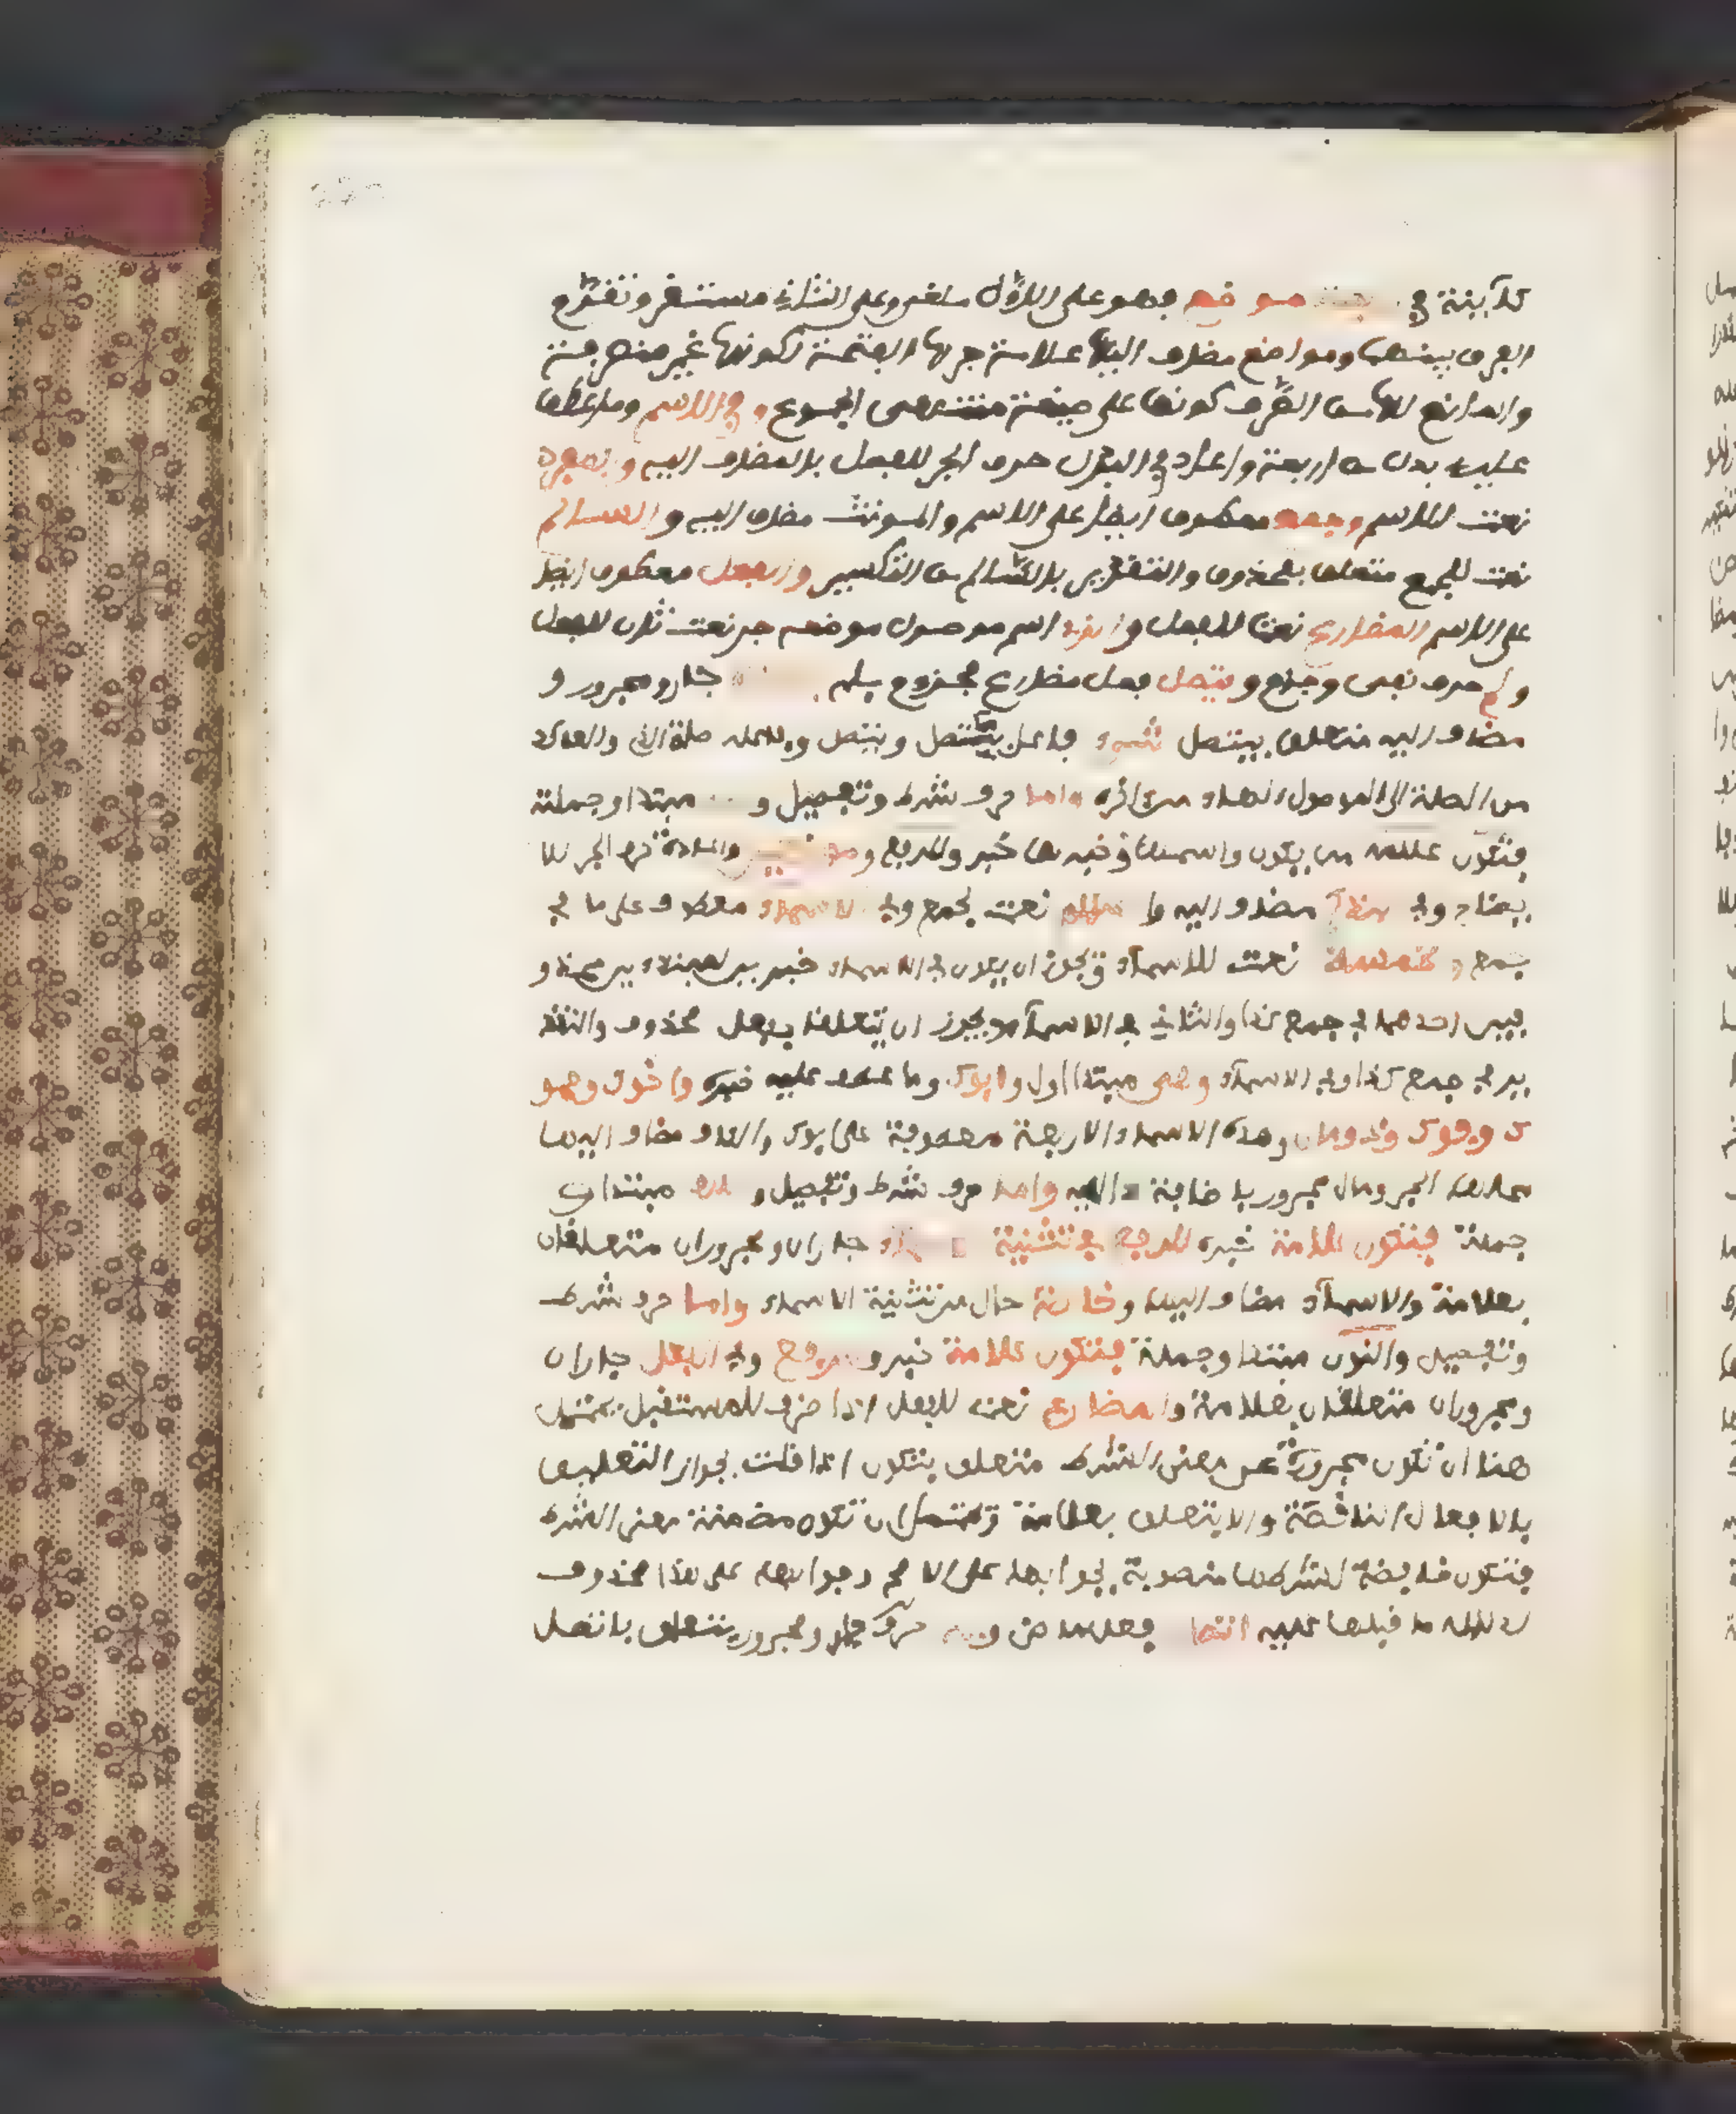 كاينة في مواضع فهو على الاول ملغى وعلى الثاني مستقر وتقدم
الفرق بينهما ومواضع مضاف اليها علامة جرها الفتحة لكونها غير منصرفة
والمانع لها من الصرف كونها على صيغة منتهى الجموع وفي الاسم وما عطف
عليه بدل من اربعة واعاد في البدل حرف الجر للفعل بالمضاف اليه والمفرد
نعت للاسم وجمع معطوف ايضا على الاسم والمونث مضاف اليه والسالم
نعت للجمع متعلق بمحذوف والتقدير بالسالم من التكسير والفعل معطوف ايضا
على الاسم المضارع نعت للفعل والذي اسم موصول موضعه جر نعت ثان للفعل
ولم حرف نفي وجزم ويتصل فعل مضارع مجزوم بلم جار ومجرور و
مضاف اليه متعلق بيتصل شيء فاعل يتصل ويتصل وفاعله صلة الذي والعائد
من الصلة الى الموصول الهاء من اخره واما حرف شرط وتفصيل و مبتدا وجملة
فتكون علامة من يكون واسمها وخبرها خبر وللرفع و
مضاف اليه نعت لجمع وفي الاسماء معطوف على ما في
جمع و نعت للاسماء ويجوز ان يكون في الاسماء خبر
فيين احدهما في جمع كذا والثاني في الاسماء ويجوز ان يتعلقا بفعل محذوف والتقد
ير في جمع كذا وفي الاسماء وهي مبتدا اول وابوك وما عطف عليه خبره واخوك وحمو
ك وفوك وذو مال وهذه الاسماء الاربعة معطوفة على ابوك والكاف مضاف اليها
محلها الجر ومال مجرور باضافة اليه واما حرف شرط وتفصيل و مبتدا و
جملة فتكون علامة خبره للرفع في تثنية جاران ومجروران متعلقان
بعلامة والاسماء مضاف اليها وخاصة حال من تثنية الاسماء واما حرف شرط
وتفصيل والنون مبتدا وجملة فتكون علامة خبر وللرفع وفي الفعل جاران
ومجروران متعلقان بعلامة والمضارع نعت للفعل اذا ظرف للمستقبل يحتمل
هنا ان تكون مجردة عن معنى الشرط متعلق بتكون اذا قلت بجواز التعليق
بالافعال الناقصة والا يتعلق بعلامة ويحتمل ان تكون مضمنة معنى الشرط
فتكون خافضة لشرطها منصوبة بجوابها على الاصح وجوابها على هذا محذوف
لدلالة ما قبلها عليه اتصل فعل ماض وبه حرف جار ومجرور يتعلق باتصل